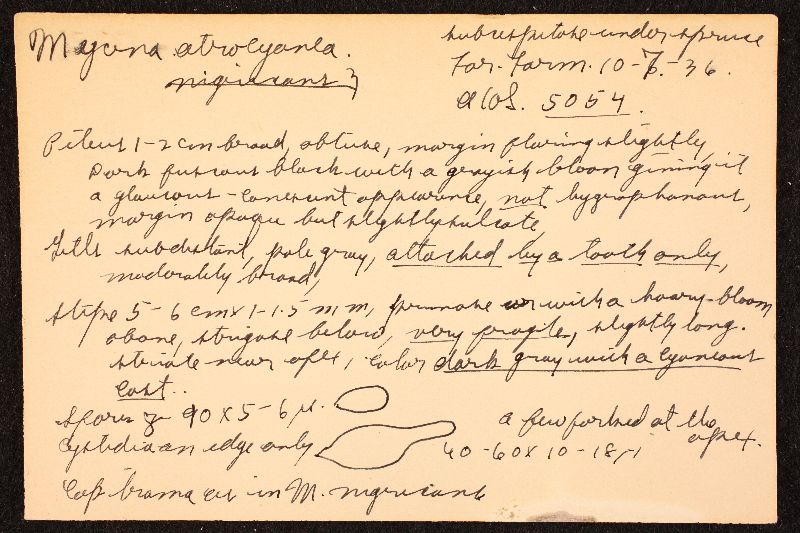 Mycena atrocyanea.
nigricans?
subcespitose under spruce
For. Farm. 10-7-36.
AHS. 5054.
Pileus 1-2 cm broad, obtuse, margin flaring slightly,
dark fuscous black with a grayish bloom gining it
a glaucous-canescent appearance, not hygrophanous,
margin opaque but slightly sulcate,
Gills subdistant, pale gray, attached by a tooth only,
moderately broad,
Stipe 5-6 cm x 1-1.5 mm, pruinose with a hoary-bloom
above, strigose below, very fragile, slightly long.
striate near apex, color dark gray with a cyaneous
cast.
Spores 90 x 5-6 µ.
Cystidia on edge only
a few forked at the
apex.
40-60 x 10-18 µ
Cap trama as in M. nigricans